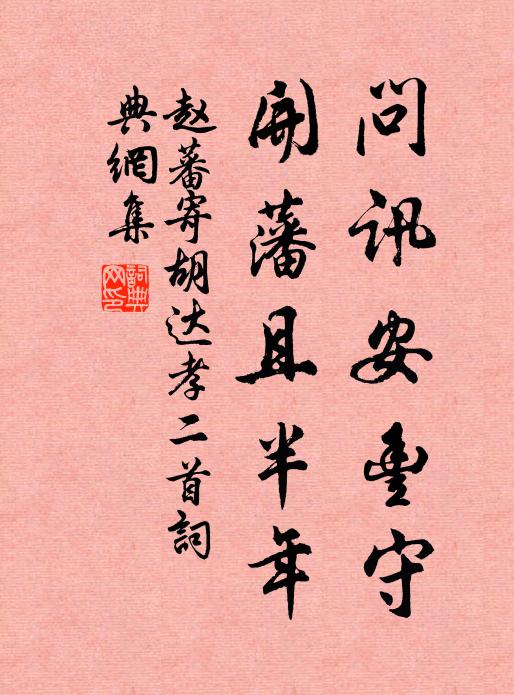 问讯安丰守
开藩且半年
赵蕃寄胡达孝二首詞
典網集
詞典网印